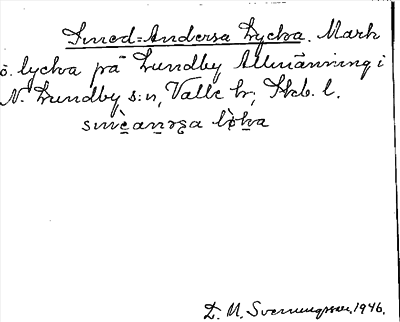 Smed-Andersa Lycka. Mark
o. lycka på Lundby Allmänning i
N. Lundby s:n, Valle hr, Skb. l.
D. M. Svenungsson, 1946.